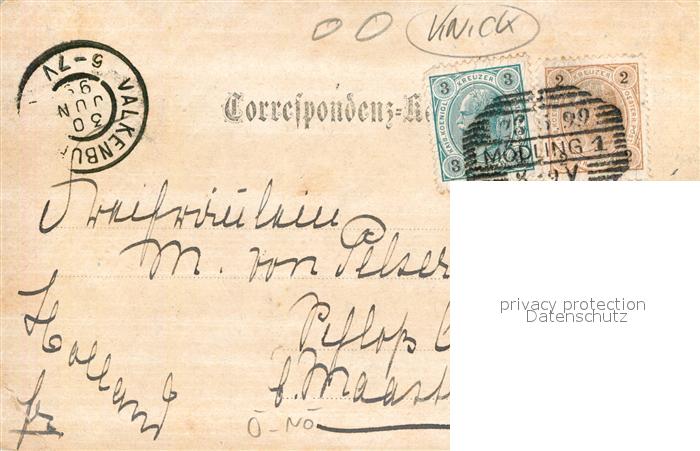 KNICK
5-7V
VALKENBU
30
JUN
99
Correspondenz-Ka
3 KREUZER 3
KAIS. KOENIGL.
3
2 KREUZER 2
2
99
MÖDLING 1
Freifräulein
M. von Pelser
Schloß
b. Maast
Holland
Ö-NÖ
privacy protection
Datenschutz